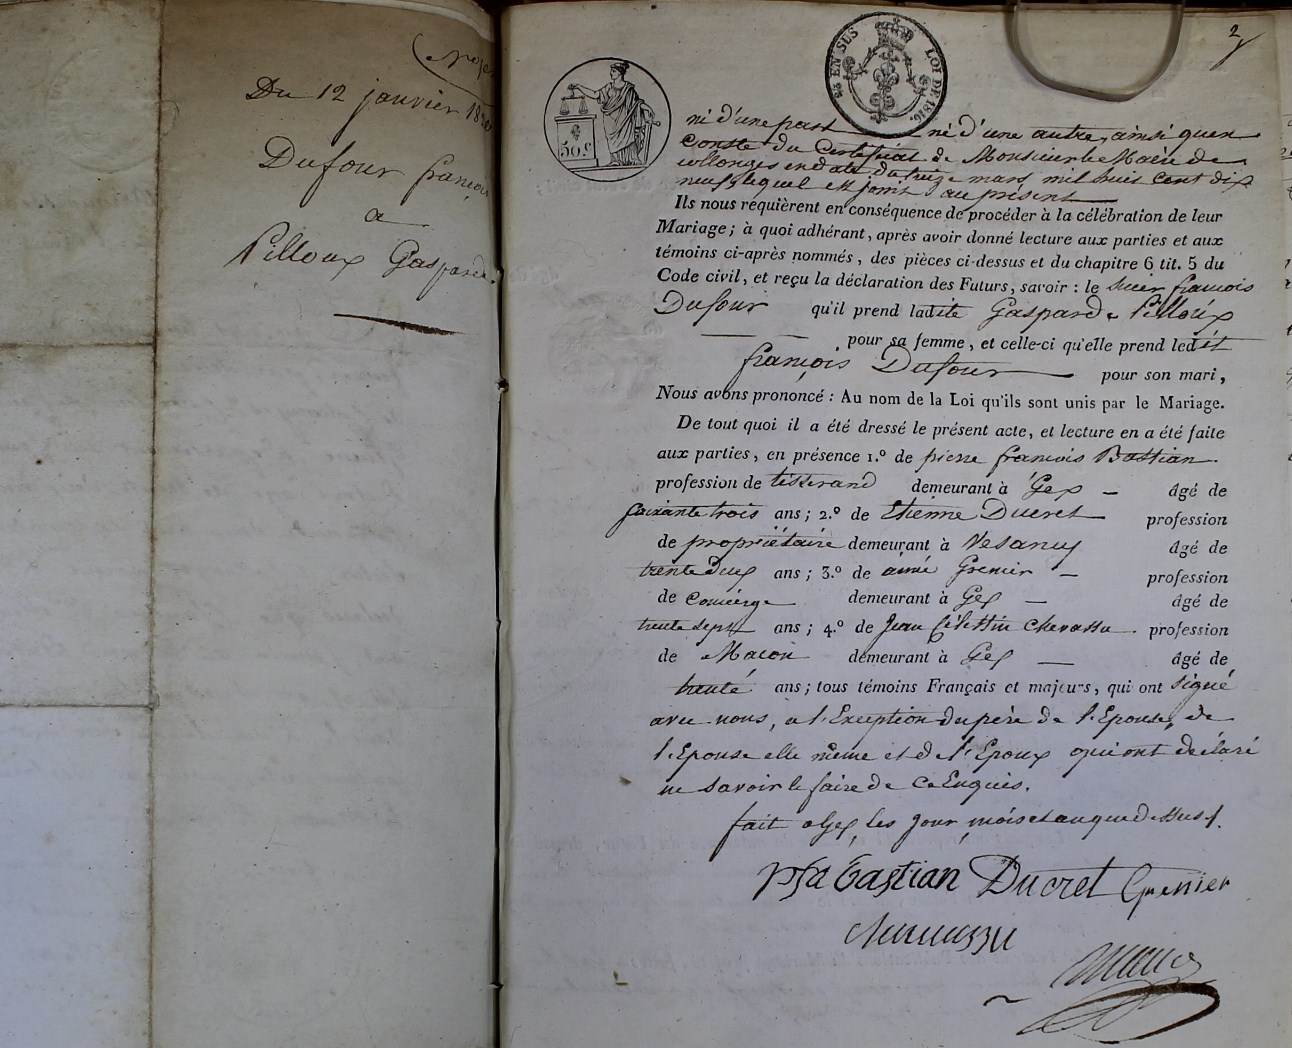 Du 12 janvier 18
Dufour françois
a
Pilloux Gasparde.
50 c.
EN SUS LOI DE 1816.
2
ni d'une part ni d'une autre, ainsi qu'en
conste du Certificat de Monsieur le Maire de
collonges en date du treize mars mil huit cent dix
neuf, lequel est joint au présent
Ils nous requièrent en conséquence de procéder à la célébration de leur
Mariage; à quoi adhérant, après avoir donné lecture aux parties et aux
témoins ci-après nommés, des pièces ci-dessus et du chapitre 6 tit. 5 du
Code civil, et reçu la déclaration des Futurs, savoir: le sieur françois
Dufour qu'il prend ladite Gasparde Pilloux
pour sa femme, et celle-ci qu'elle prend ledit
françois Dufour pour son mari,
Nous avons prononcé: Au nom de la Loi qu'ils sont unis par le Mariage.
De tout quoi il a été dressé le présent acte, et lecture en a été faite
aux parties, en présence 1.º de pierre françois Bastian
profession de tisserand demeurant à Gex âgé de
soixante trois ans; 2.º de Etienne Ducret profession
de propriétaire demeurant à Vesancy âgé de
trente deux ans; 3.º de aimé Grenier profession
de concierge demeurant à Gex âgé de
trente sept ans; 4.º de Jean Célestin Chevassu profession
de Macon demeurant à Gex âgé de
trente ans; tous témoins Français et majeurs, qui ont signé
avec nous, a l'Exception du père de l'Epouse, de
l'Epouse elle même et de l'Epoux qui ont déclaré
ne savoir le faire de ce Enquis.
fait a Gex, les jour, mois et an que dessus.
Bastian Ducret Grenier